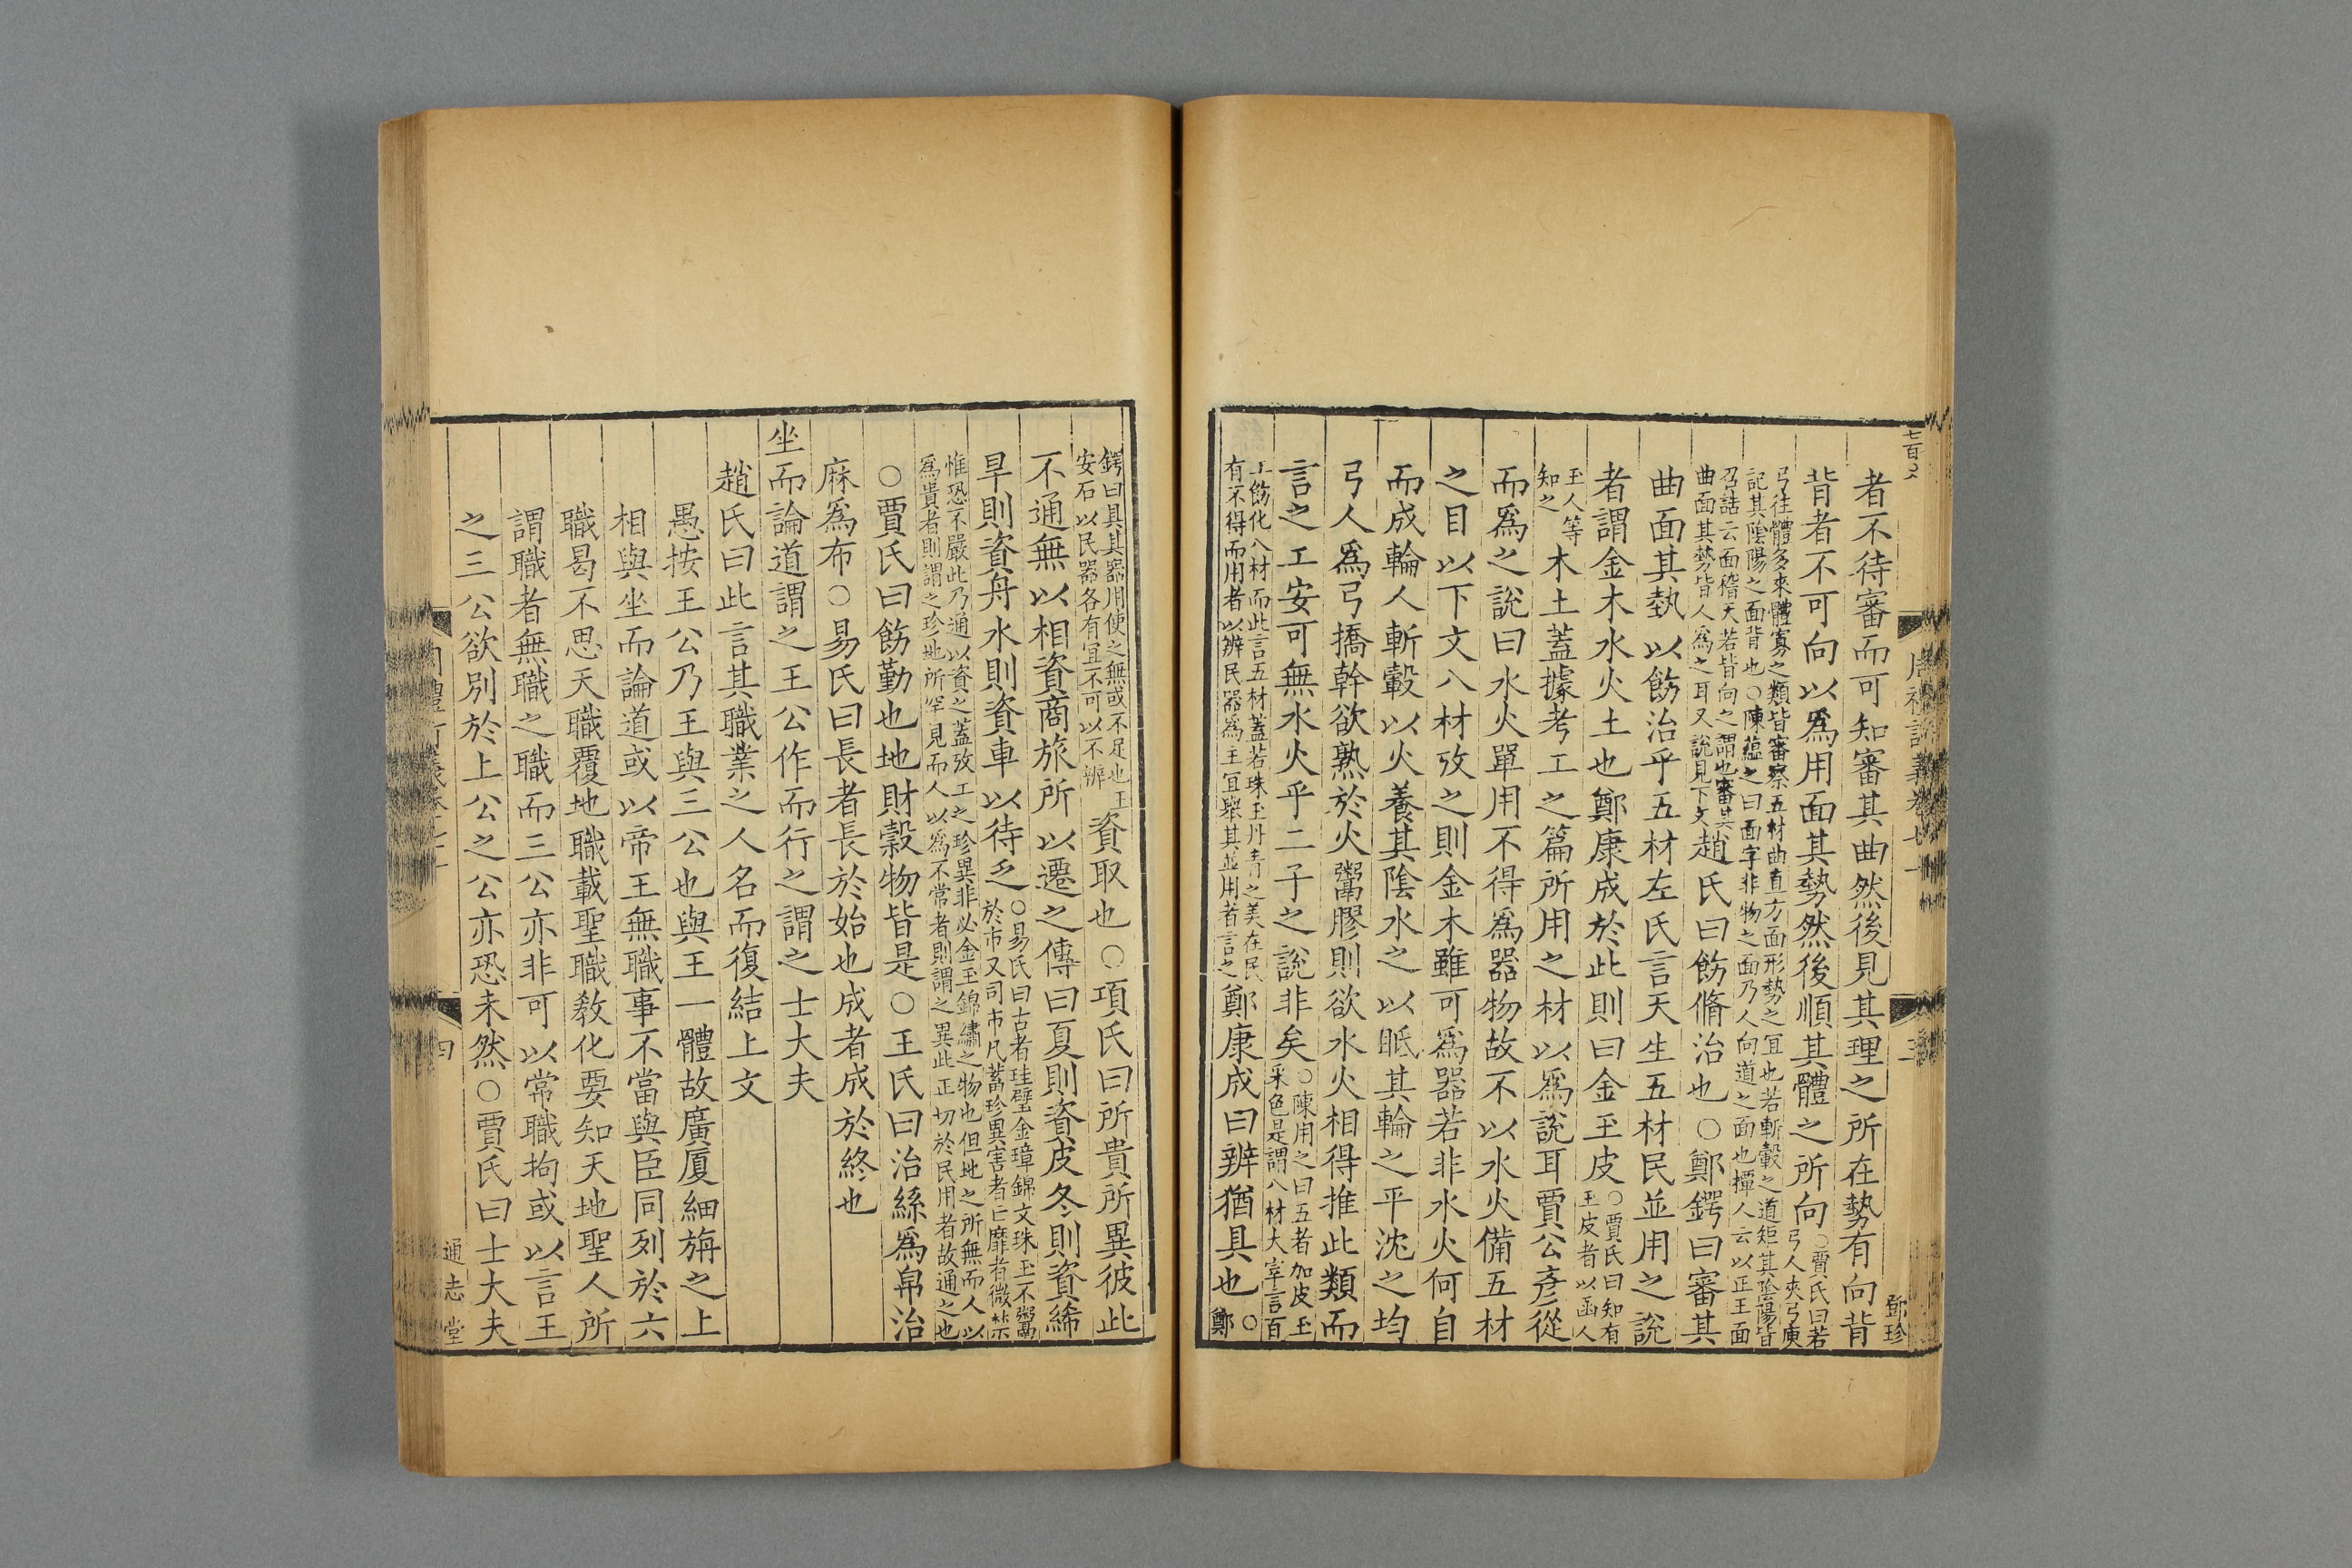 者不待審而可知審其曲然後見其理之所在勢有向背
背者不可向以爲用面其勢然後順其體之所向○賈氏曰若弓人夾弓庾
弓往體多來體寡之類皆審察五材曲直方面形勢之宜也若斬轂之道矩其陰陽皆
記其陰陽之面背也○陳蘊之曰面字非物之面乃人向道之面也撢人云以正王面
召誥云面稽天若皆向之謂也審其
曲面其勢皆人爲之耳又說見下文趙氏曰飭脩治也○鄭鍔曰審其
曲面其埶以飭治乎五材左氏言天生五材民並用之說
者謂金木水火土也鄭康成於此則曰金玉皮○賈氏曰知有玉皮者以函人
玉人等知之木土蓋據考工之篇所用之材以爲說耳賈公彦從
而爲之說曰水火單用不得爲器物故不以水火備五材
之目以下文八材攷之則金木雖可爲器若非水火何自
而成輪人斬轂以火養其陰水之以眡其輪之平沈之均
弓人爲弓撟幹欲熟於火鬻膠則欲水火相得推此類而
言之工安可無水火乎二子之說非矣○陳用之曰五者加皮玉采色是謂八材大宰言百
工飭化八材而此言五材蓋若珠玉丹青之美在民
有不得而用者以辨民器爲主宜舉其並用者言之鄭康成曰辨猶具也○鄭
鍔曰具其器用使之無或不足也王
安石以民器各有宜不可以不辨資取也○項氏曰所貴所異彼此
不通無以相資商旅所以遷之傳曰夏則資皮冬則資絺
旱則資舟水則資車以待乏○易氏曰古者珪璧金璋錦文珠玉不鬻於市又司市凡蓄珍異害者亡靡者微
惟恐不嚴此乃通以資之蓋攷工之珍異非必金玉錦繡之物也但地之所無而人以
爲貴者則謂之珍地所罕見而人以爲不常者則謂之異此正切於民用者故通之也
○賈氏曰飭勤也地財穀物皆是○王氏曰治絲爲帛治
麻爲布○易氏曰長者長於始也成者成於終也
坐而論道謂之王公作而行之謂之士大夫
趙氏曰此言其職業之人名而復結上文
愚按王公乃王與三公也與王一體故廣厦細旃之上
相與坐而論道或以帝王無職事不當與臣同列於六
職曷不思天職覆地職載聖職敎化要知天地聖人所
謂職者無職之職而三公亦非可以常職拘或以言王
之三公欲別於上公之公亦恐未然○賈氏曰士大夫
通志堂
鄧珍